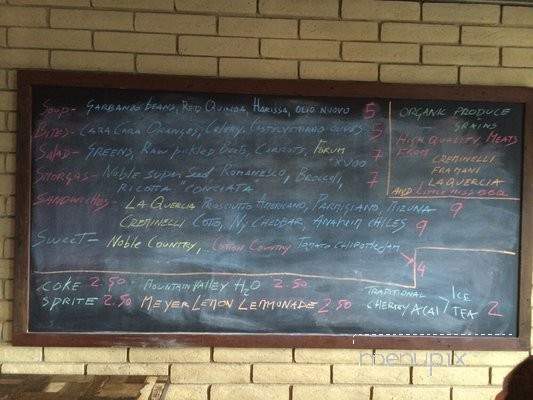 SOUP - GARBANZO BEANS, RED QUINOA, HARISSA, OLIO NUOVO 5
BITES - CARA CARA ORANGES, CELERY, CASTELVETRANO OLIVES 5
SALAD - GREENS, RAW PICKLED BEETS, CARROTS, FORUM 7
SMORGAS - NOBLE SUPER SEED ROMANESCO, BROCCOLI, 7
RICOTTA "CONCIATA"
SANDWICHES - LA QUERCIA PROSCIUTTO AMERICANO, PARMIGIANO, MIZUNA 9
CREMINELLI COTTO, NY CHEDDAR, ANAHEIM CHILES 9
SWEET - NOBLE COUNTRY, COTTON COUNTRY TOMATO CHIPOTLE JAM 4
ORGANIC PRODUCE
GRAINS
HIGH QUALITY MEATS
FROM CREMINELLI
FRAMANI
LA QUERCIA
AND
COKE 2.50 MOUNTAIN VALLEY H2O 2.50
SPRITE 2.50 MEYER LEMON LEMONADE 2.50
TRADITIONAL
CHERRY ACAI
ICE
TEA 2
menupix